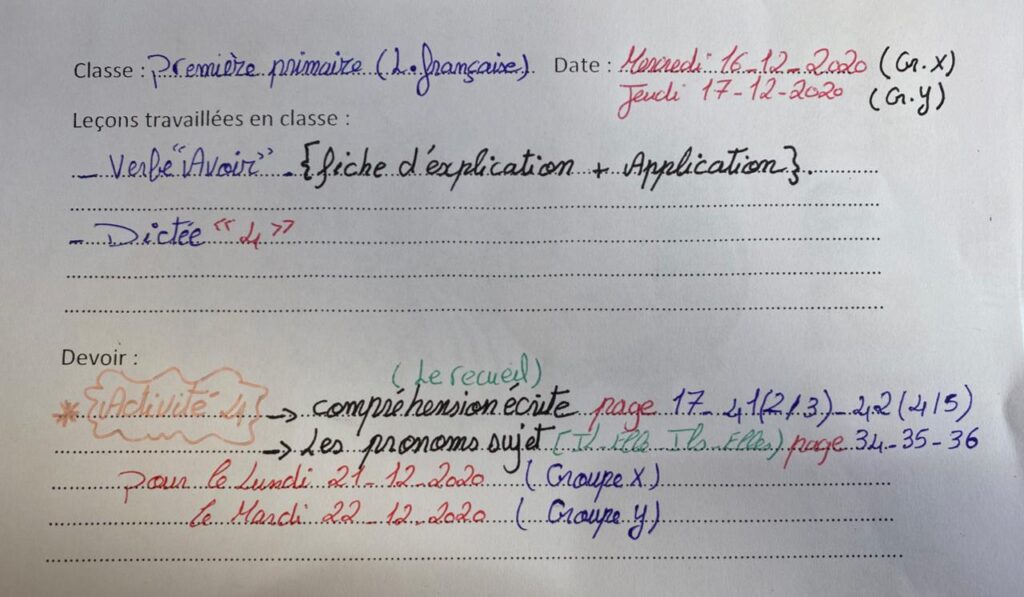 Classe : Première primaire (L. française). Date : Mercredi 16-12-2020 (Gr.X)
Jeudi 17-12-2020 (Gr.y)
Leçons travaillées en classe :
- Verbe "Avoir" - {fiche d'éxplication + Application}.
- Dictée "4"
Devoir :
(Le recueil)
* Activité 4 -> compréhension écrite page 17 - 41(2/3) - 42(4/5)
-> Les pronoms sujet (Il Elle Ils Elles) page 34-35-36
pour le Lundi 21-12-2020 (Groupe X)
le Mardi 22-12-2020 (Groupe y)